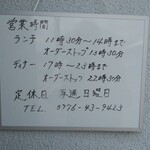 営業時間
ランチ 11時30分〜14時まで
オーダーストップ13時30分
ディナー 17時〜23時まで
オーダーストップ 22時30分
定休日 毎週日曜日
TEL 0776-43-9423